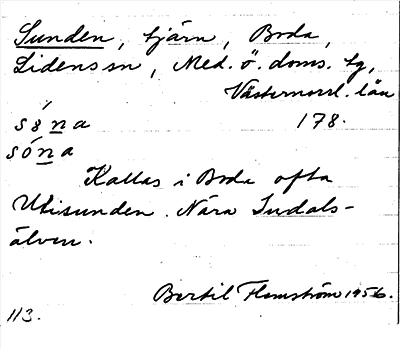 Sunden, tjärn, Boda,
Lidens sn, Med. ö. doms. tg,
Västernorrl. län
sǿna 178.
sóna
Kallas i Boda ofta
Utisunden. Nära Indals-
älven.
Bertil Flemström 1956.
113.